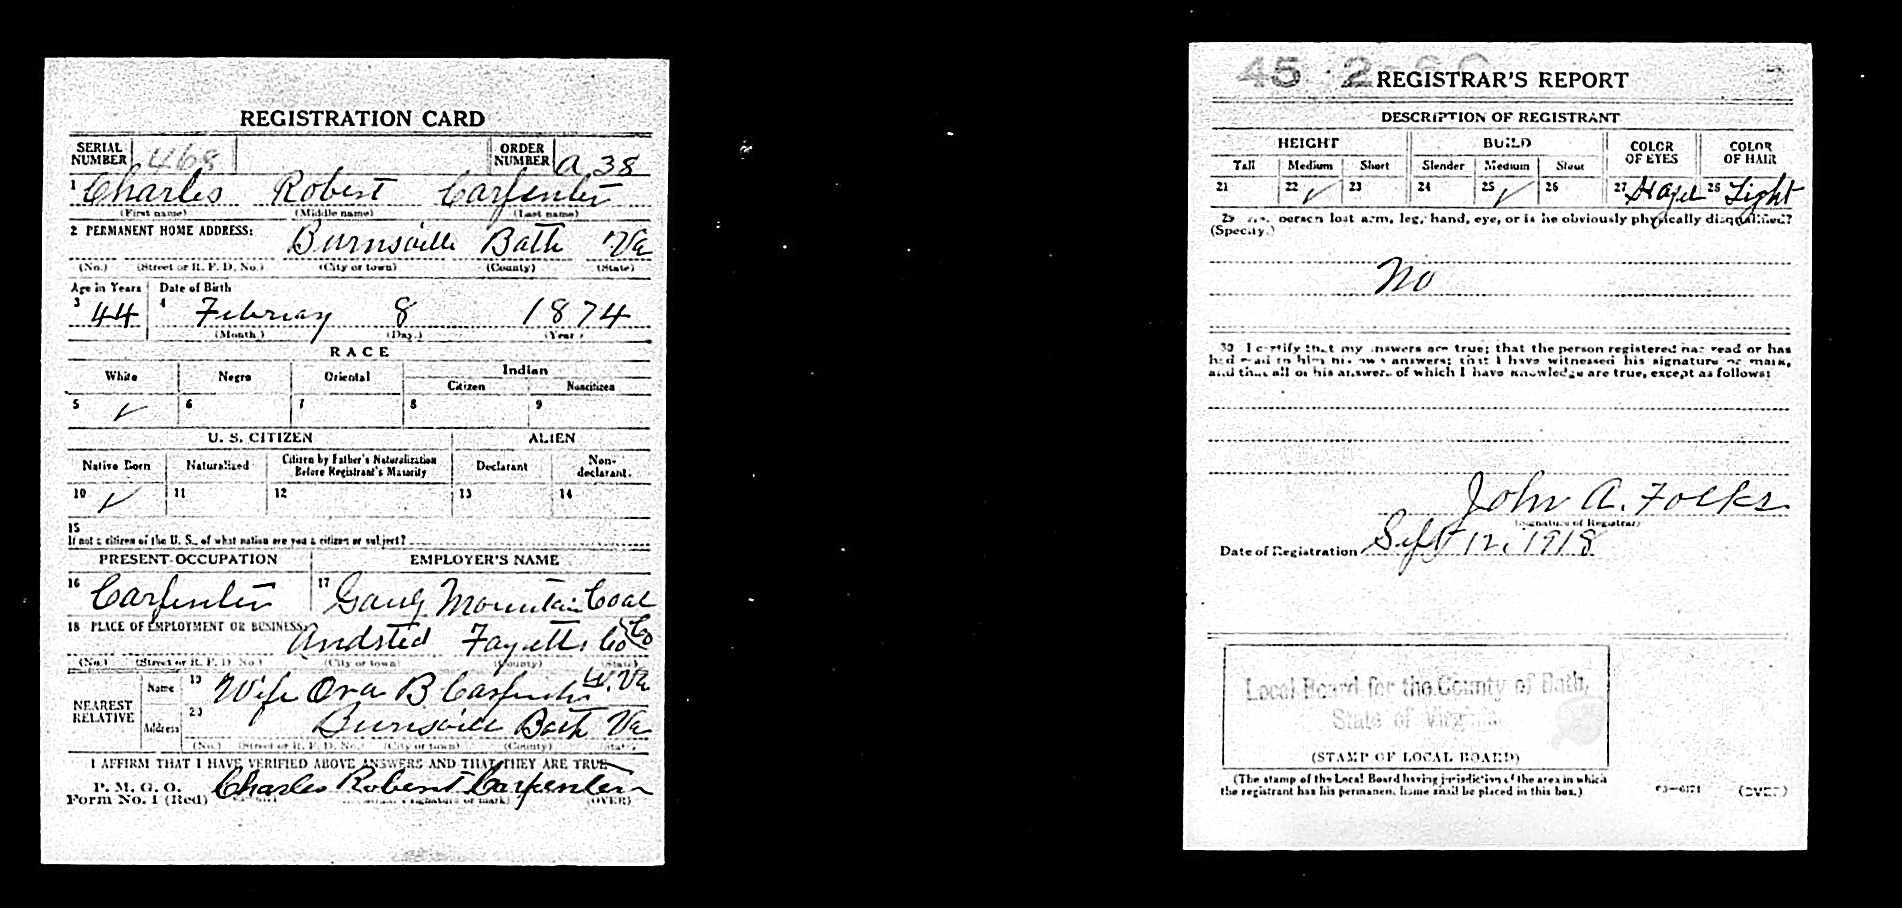 REGISTRATION CARD
SERIAL NUMBER 468 ORDER NUMBER a 38
1 Charles Robert Carpenter
(First name) (Middle name) (Last name)
2 PERMANENT HOME ADDRESS: Burnsville Bath Va
(No.) (Street or R. F. D. No.) (City or town) (County) (State)
Age in Years Date of Birth
3 44 4 February 8 1874
(Month) (Day.) (Year)
RACE
White Negro Oriental Indian
Citizen Noncitizen
5 ✓ 6 7 8 9
U. S. CITIZEN ALIEN
Native Born Naturalized Citizen by Father's Naturalization Before Registrant's Maturity Declarant Non-declarant.
10 ✓ 11 12 13 14
15
If not a citizen of the U. S., of what nation are you a citizen or subject?
PRESENT OCCUPATION EMPLOYER'S NAME
16 Carpenter 17 Gauly Mountain Coal Co
18 PLACE OF EMPLOYMENT OR BUSINESS: Andsted Fayette Co W. Va
(No.) (Street or R. F. D. No.) (City or town) (County) (State)
NEAREST RELATIVE Name 19 Wife Ora B Carpenter
Address 20 Burnsville Bath Va
(No.) (Street or R. F. D. No.) (City or town) (County) (State)
I AFFIRM THAT I HAVE VERIFIED ABOVE ANSWERS AND THAT THEY ARE TRUE
P. M. G. O.
Form No. 1 (Red) Charles Robert Carpenter
(Signature or mark) (OVER)
45 2
REGISTRAR'S REPORT
DESCRIPTION OF REGISTRANT
HEIGHT BUILD COLOR OF EYES COLOR OF HAIR
Tall Medium Short Slender Medium Stout
21 22 ✓ 23 24 25 ✓ 26 27 Hazel 28 Light
29 Has person lost arm, leg, hand, eye, or is he obviously physically disqualified?
(Specify.)
No
30 I certify that my answers are true; that the person registered has read or has
had read to him his own answers; that I have witnessed his signature or mark,
and that all of his answers of which I have knowledge are true, except as follows:
John A. Folks
(Signature of Registrar)
Date of Registration Sept 12, 1918
Local Board for the County of Bath,
State of Virginia
(STAMP OF LOCAL BOARD)
(The stamp of the Local Board having jurisdiction of the area in which
the registrant has his permanent home shall be placed in this box.)
03—6171 (OVER)